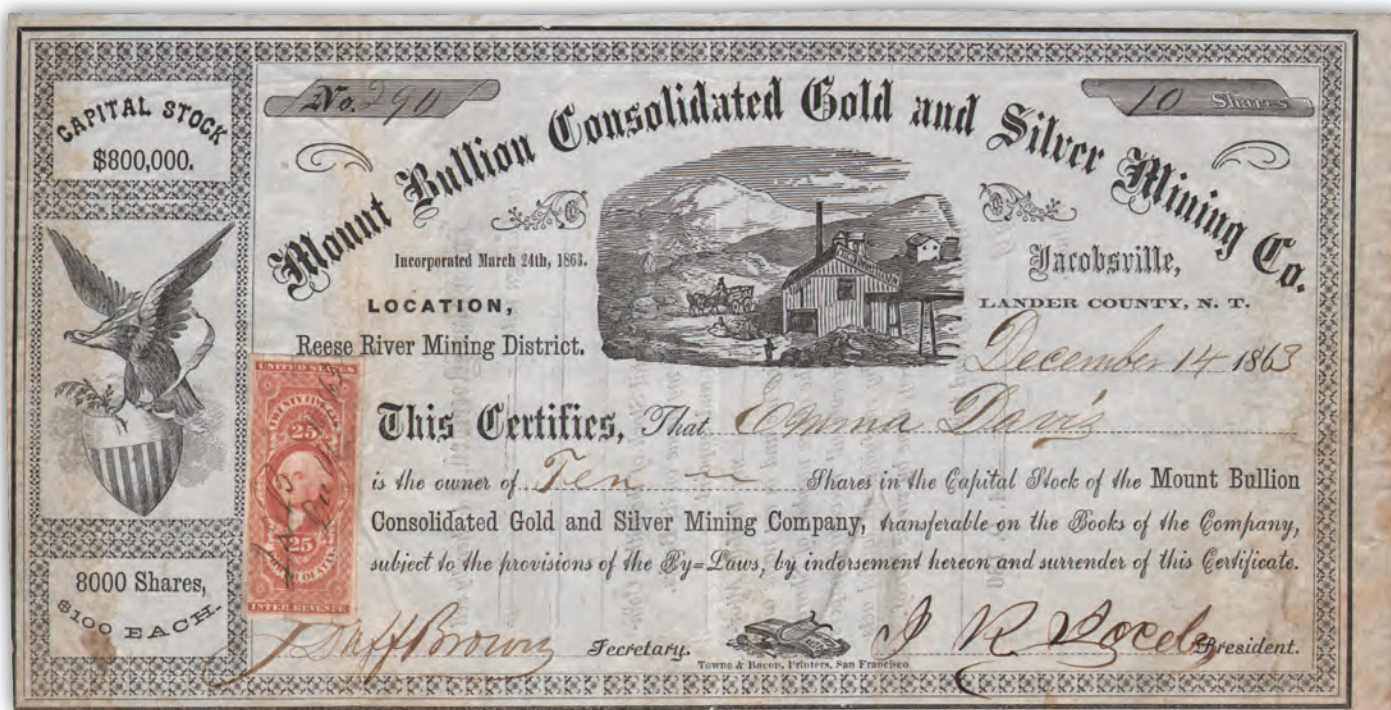 CAPITAL STOCK
$800,000.
No. 290
10 Shares
Mount Bullion Consolidated Gold and Silver Mining Co.
Incorporated March 24th, 1863.
LOCATION,
Reese River Mining District.
Jacobsville,
LANDER COUNTY, N. T.
December 14 1863
UNITED STATES
TWENTY FIVE
25
25
INTER. REVENUE
This Certifies, That Emma Davis
is the owner of Ten Shares in the Capital Stock of the Mount Bullion
Consolidated Gold and Silver Mining Company, transferable on the Books of the Company,
subject to the provisions of the By=Laws, by indorsement hereon and surrender of this Certificate.
8000 Shares,
$100 EACH.
Brown Secretary.
President.
Towne & Bacon, Printers, San Francisco